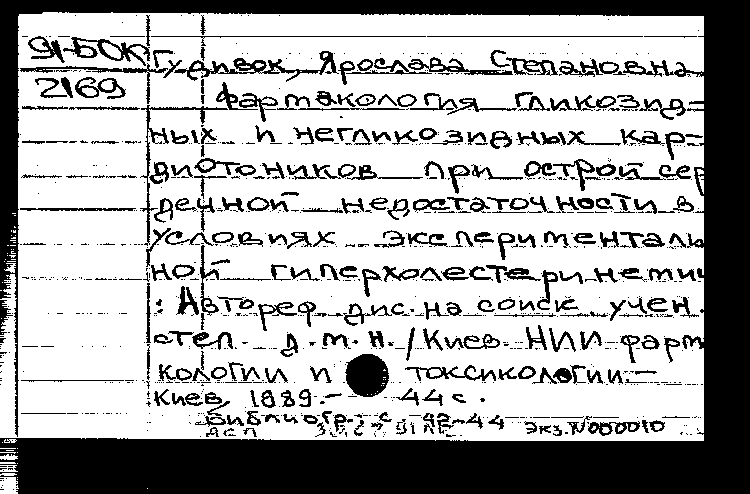 91-БОК
2169
Гудивок, Ярослава Степановна
Фармакология гликозид-
ных и негликозидных кар-
диотоников при острой сер
дечной недостаточности в
условиях эксперименталь
ной гиперхолестеринемии
: Автореф. дис. на соиск. учен.
степ. д.м.н. / Киев. НИИ фарм
кологии и токсикологии. —
Киев, 1989. - 44 с.
Библиогр.: с. 42-44
экз. N000010